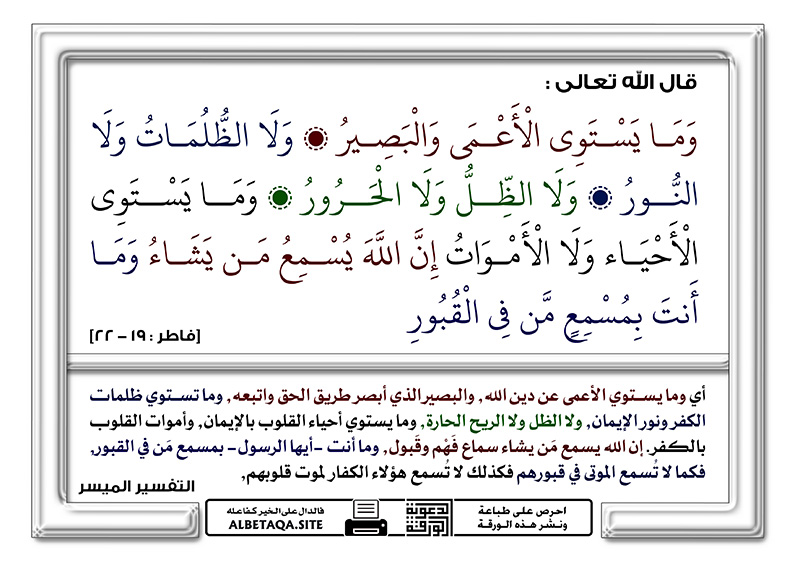 قال الله تعالى :
وَمَا يَسْتَوِي الْأَعْمَى وَالْبَصِيرُ ۝ وَلَا الظُّلُمَاتُ وَلَا
النُّورُ ۝ وَلَا الظِّلُّ وَلَا الْحَرُورُ ۝ وَمَا يَسْتَوِي
الْأَحْيَاء وَلَا الْأَمْوَاتُ إِنَّ اللَّهَ يُسْمِعُ مَن يَشَاءُ وَمَا
أَنتَ بِمُسْمِعٍ مَّن فِي الْقُبُورِ
[فاطر : ١٩ - ٢٢]
أي وما يستوي الأعمى عن دين الله, والبصير الذي أبصر طريق الحق واتبعه, وما تستوي ظلمات
الكفر ونور الإيمان, ولا الظل ولا الريح الحارة, وما يستوي أحياء القلوب بالإيمان, وأموات القلوب
بالكفر. إن الله يسمع مَن يشاء سماع فَهْم وقَبول, وما أنت -أيها الرسول- بمسمع مَن في القبور,
فكما لا تُسمع الموتى في قبورهم فكذلك لا تُسمع هؤلاء الكفار لموت قلوبهم,
التفسير الميسر
احرص على طباعة
ونشر هذه الورقة
الورقة
الدعوية
فالدال على الخير كفاعله
ALBETAQA.SITE